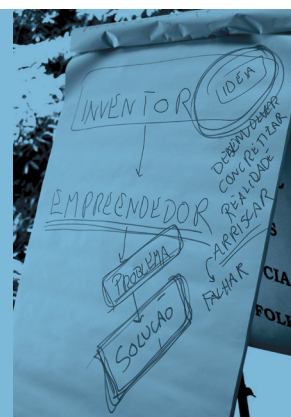 INVENTOR
IDEIA
DESENVOLVER
CONCRETIZAR
REALIDADE
ARRISCAR
FALHAR
EMPREENDEDOR
PROBLEMA
SOLUÇÃO
S
CIA
FOLH